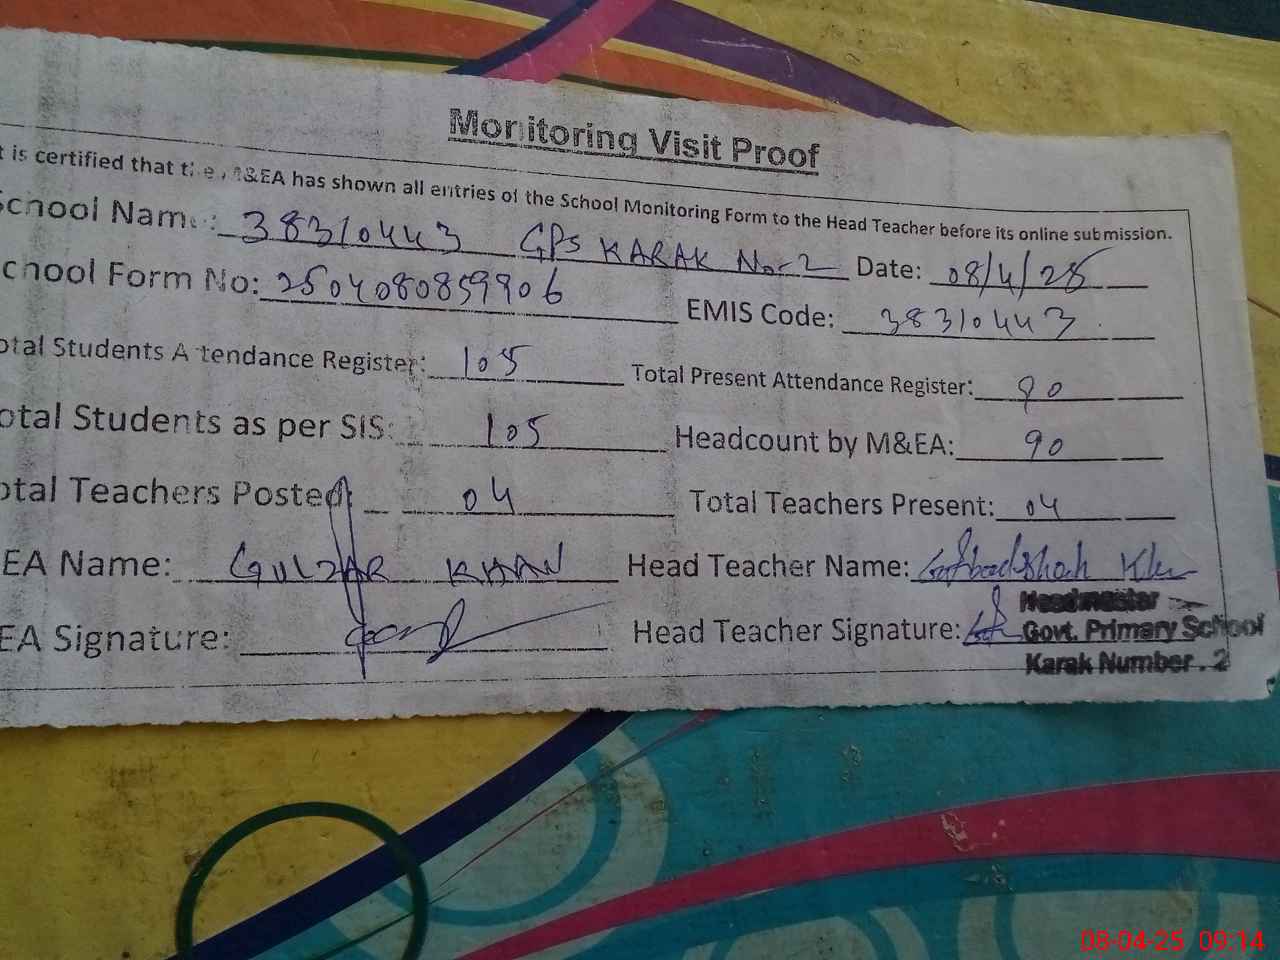 Monitoring Visit Proof
t is certified that the M&EA has shown all entries of the School Monitoring Form to the Head Teacher before its online submission.
School Name: 38310443 GPS KARAK No-2 Date: 08/4/25
chool Form No: 2504080859906 EMIS Code: 38310443
otal Students Attendance Register: 105 Total Present Attendance Register: 90
otal Students as per SIS: 105 Headcount by M&EA: 90
otal Teachers Posted: 04 Total Teachers Present: 04
EA Name: GULZAR KHAN Head Teacher Name:
EA Signature: Head Teacher Signature:
Headmaster
Govt. Primary School
Karak Number . 2
08-04-25 09:14